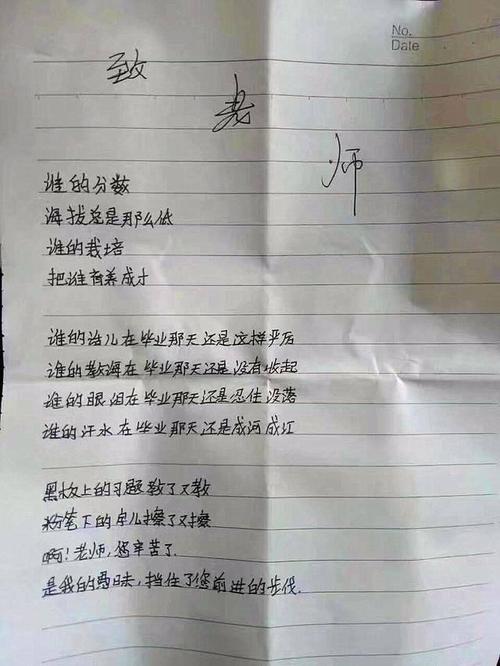 No.
Date
致
老
师
谁的分数
海拔总是那么低
谁的栽培
把谁育养成才
谁的话儿在毕业那天还是这样严厉
谁的教诲在毕业那天还是没有收起
谁的眼泪在毕业那天还是忍住没落
谁的汗水在毕业那天还是成河成江
黑板上的习题教了又教
粉笔下的字儿擦了又擦
啊!老师,您辛苦了.
是我的愚昧,挡住了您前进的步伐.